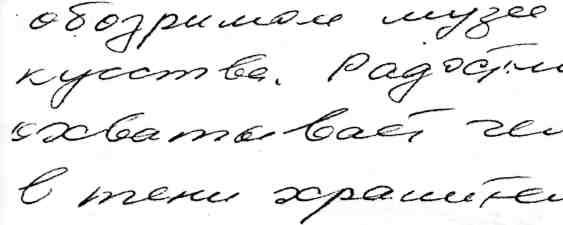 обозримом музее
кусства. Радостн
охватывает че
в тени хранител